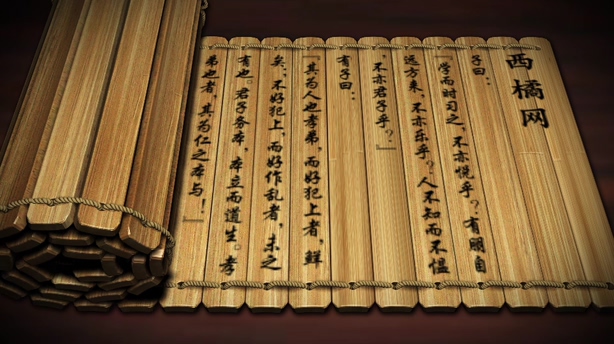 西橘网
子曰：
『学而时习之，不亦悦乎？有朋自
远方来，不亦乐乎？人不知而不愠
，不亦君子乎？』
有子曰：
『其为人也孝弟，而好犯上者，鲜
矣；不好犯上，而好作乱者，未之
有也。君子务本，本立而道生。孝
弟也者，其为仁之本与！』